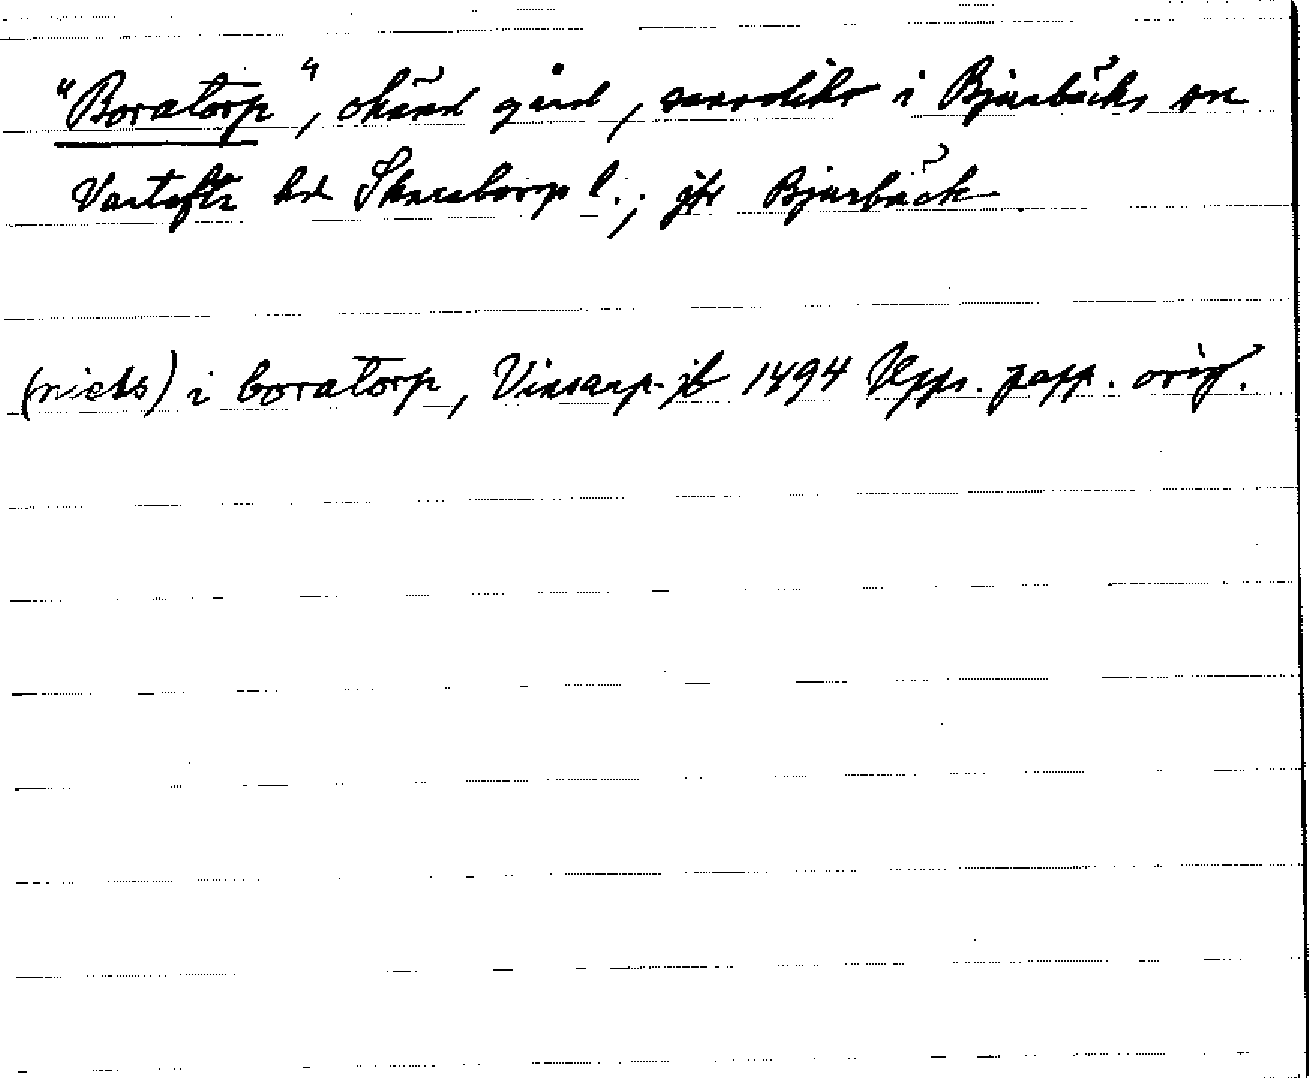 "Boratorp", okänd gård, sannolikt i Bjurbäcks sn
Vartofta hd Skaraborgs l.; jfr Bjurbäck
(niels) i boratorp, Vinsarp-jb 1494 Upps. papp. orig.